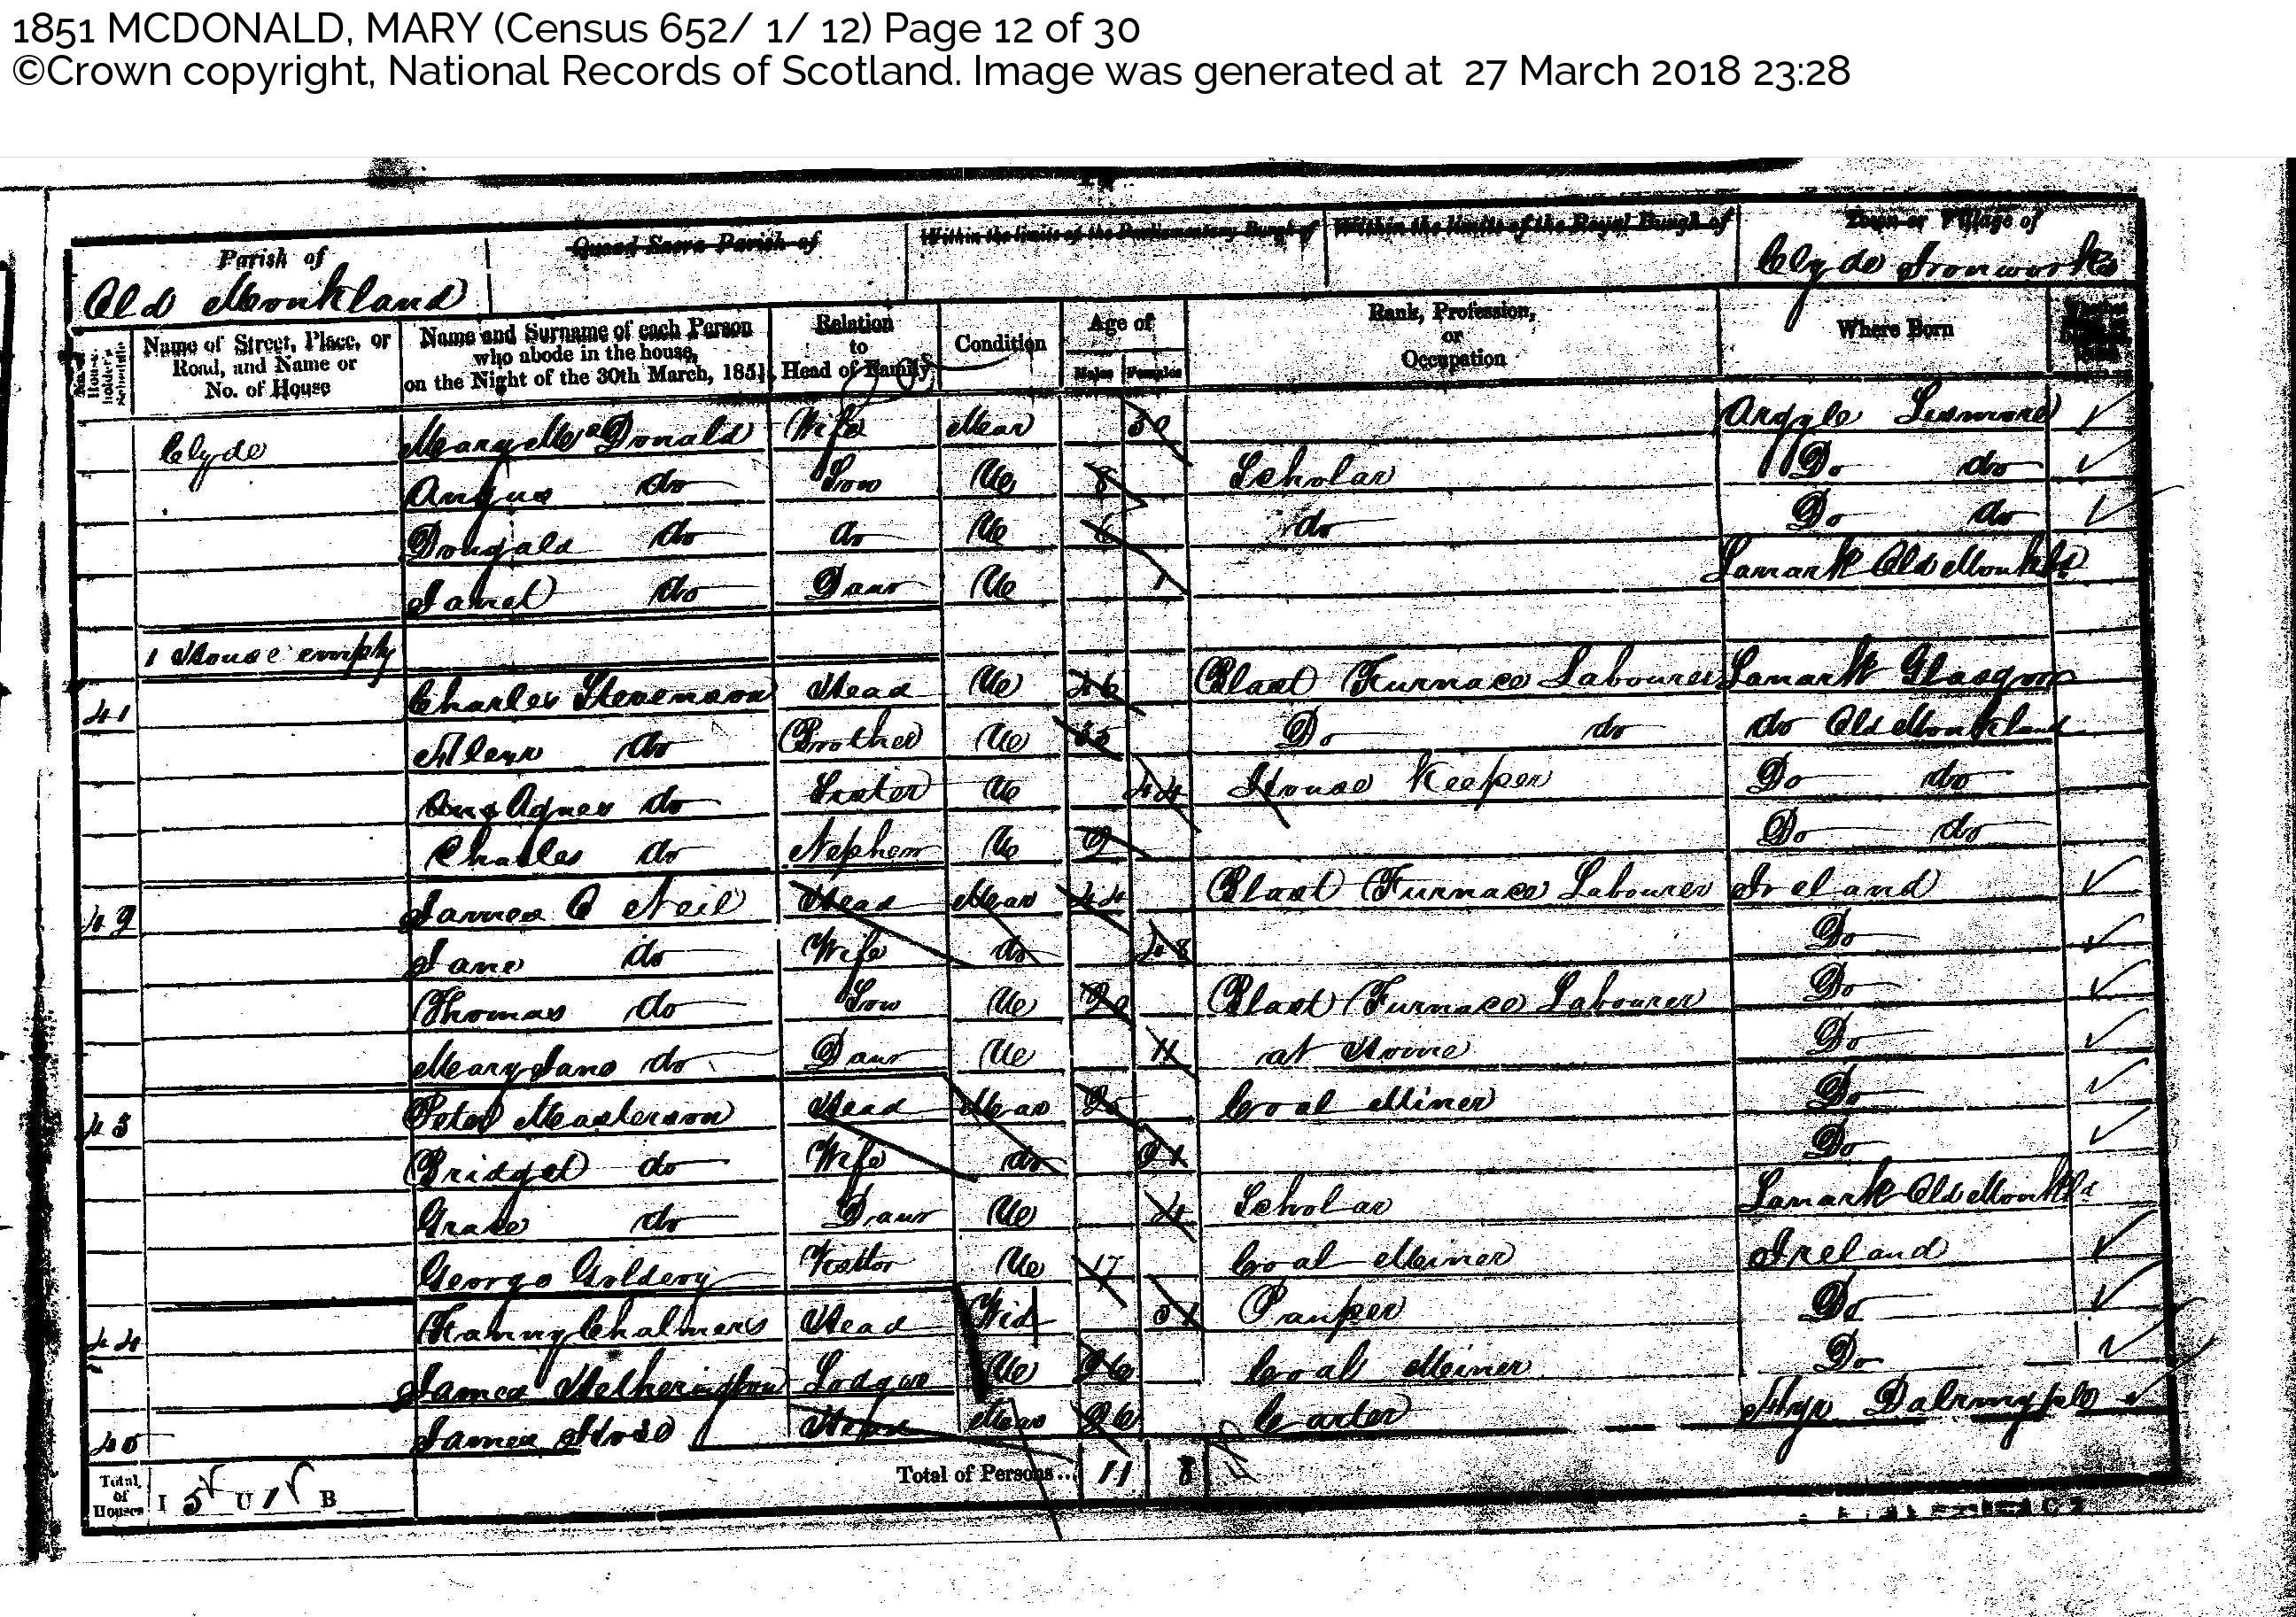 1851 MCDONALD, MARY (Census 652/ 1/ 12) Page 12 of 30
©Crown copyright, National Records of Scotland. Image was generated at 27 March 2018 23:28
Parish of Quoad Sacra Parish of Within the limits of the Parliamentary Burgh of Within the limits of the Royal Burgh of Town or Village of
Old Monkland Clyde Ironworks
Name of Street, Place, or Road, and Name or No. of House
Name and Surname of each Person who abode in the house, on the Night of the 30th March, 1851,
Relation to Head of Family
Condition
Age of
Males Females
Rank, Profession, or Occupation
Where Born
Clyde Mary McDonald Wife Mar 30 Argyle Lismore
Angus do Son Un 8 Scholar Do do
Dougald do do Un 6 do Do do
Janet do Daur Un 1 Lanark Old Monkld
1 House empty
41 Charles Stevenson Head Un 46 Blast Furnace Labourer Lanark Glasgow
Alexr do Brother Un 35 Do do do Old Monkland
Agnes do Sister Un 44 House Keeper Do do
Charles do Nephew Un 9 Do do
42 James O Neil Head Mar 44 Blast Furnace Labourer Ireland
Jane do Wife do 48 Do
Thomas do Son Un 20 Blast Furnace Labourer Do
Mary Jane do Daur Un 11 at Home Do
43 Peter Masterson Head Mar 25 Coal Miner Do
Bridget do Wife do 21 Do
Grace do Daur Un 4 Scholar Lanark Old Monkld
George Goldery Visitor Un 17 Coal Miner Ireland
44 Fanny Chalmers Head Wid 51 Pauper Do
James Hetherington Lodger Un 26 Coal Miner Do
45 James Head Mar 26 Carter Ayr Dalrymple
Total of Houses I 5 U 1 B Total of Persons... 11 8